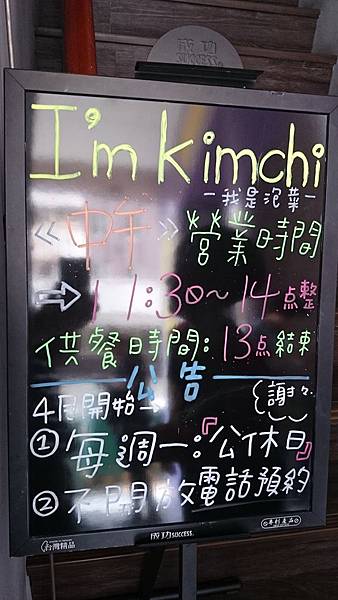 成功
SUCCESS.
I'm kimchi
－我是泡菜－
《中午》營業時間
⇨ 11:30～14点整
供餐時間：13点結束
公告
4月開始→ 謝々
① 每週一：『公休日』
② 不開放電話預約
台灣精品
成功 SUCCESS.
專利產品